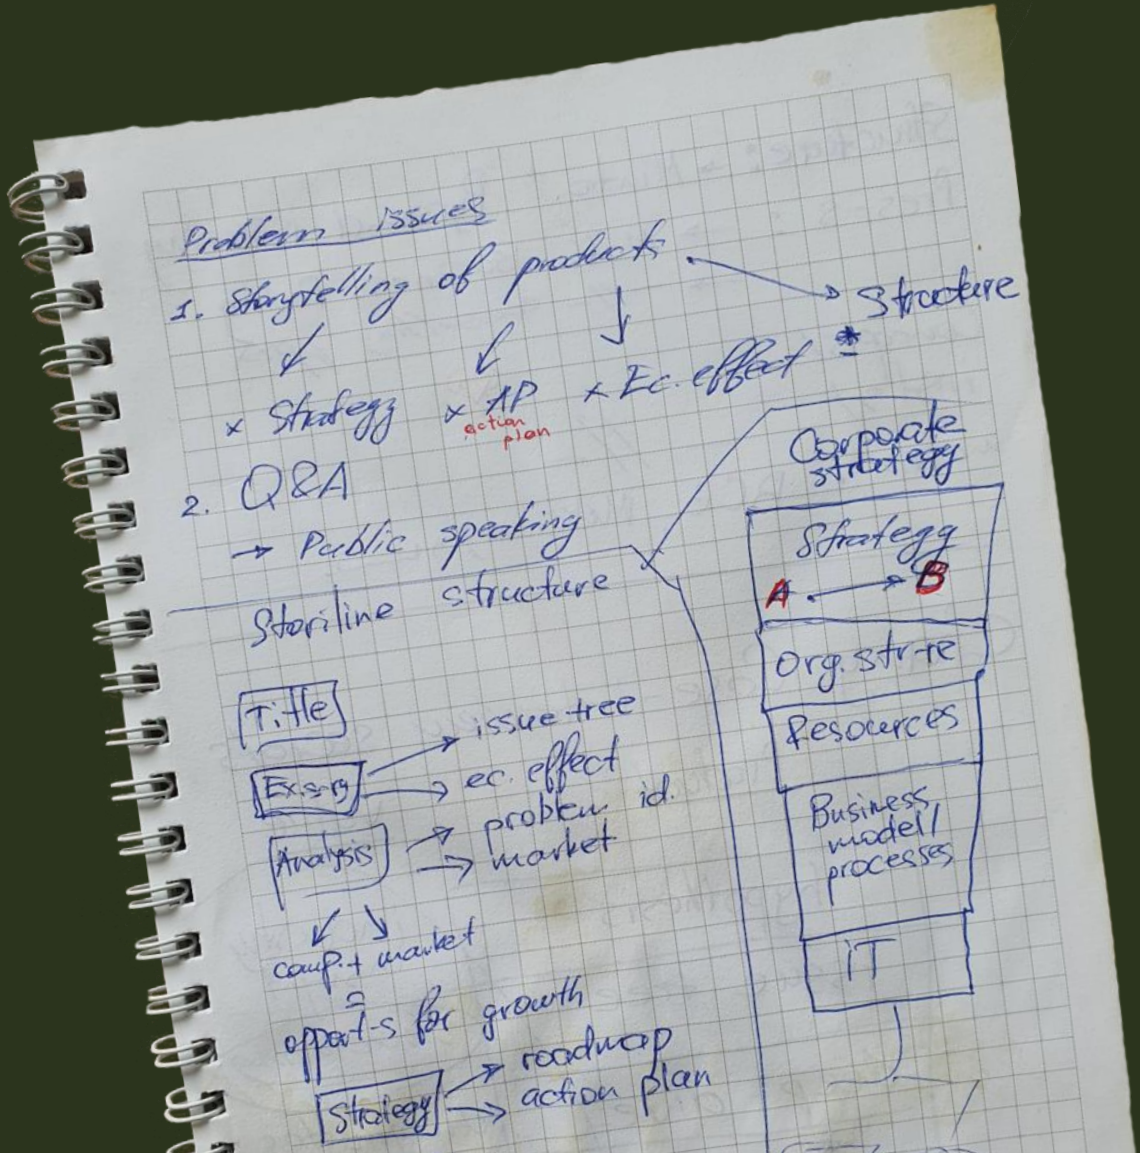 Problem issues
1. Storytelling of products → Structure
× Strategy × AP × Ec. effect *
action
plan
2. Q&A
→ Public speaking
Storiline structure
Title
Ex.s-ry → issue tree
→ ec. effect
Analysis → problem id.
→ market
comp. + market
=
opport-s for growth
Strategy → roadmap
→ action plan
Corporate
strategy
Strategy
A → B
Org. str-re
Resources
Business
model/
processes
iT